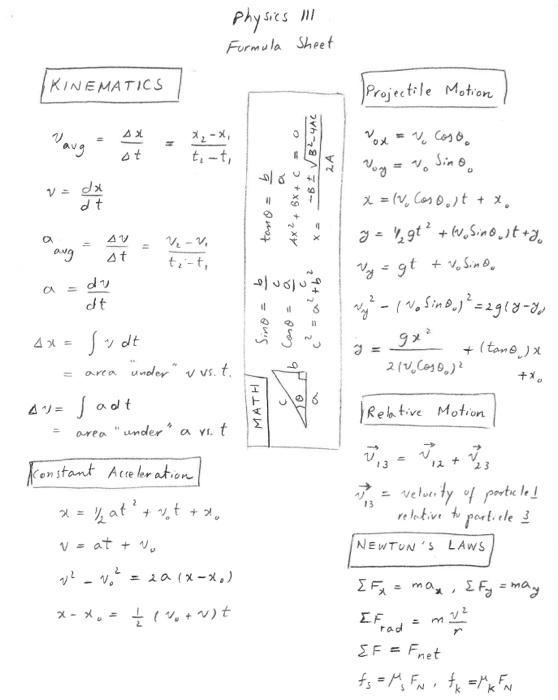 Physics 111
Formula Sheet
KINEMATICS
v_avg = Δx/Δt = (x₂-x₁)/(t₂-t₁)
v = dx/dt
a_avg = Δv/Δt = (v₂-v₁)/(t₂-t₁)
a = dv/dt
Δx = ∫ v dt
= area "under" v vs. t.
Δv = ∫ a dt
= area "under" a vs. t
Constant Acceleration
x = ½ at² + v₀t + x₀
v = at + v₀
v² - v₀² = 2a(x-x₀)
x-x₀ = ½ (v₀+v)t
MATH
c
b
θ
a
Sinθ = b/c
Cosθ = a/c
c² = a²+b²
tanθ = b/a
Ax² + Bx + C = 0
x = (-B ± √(B²-4AC))/2A
Projectile Motion
v₀ₓ = v₀ Cosθ₀
v_0y = v₀ Sinθ₀
x = (v₀ Cosθ₀)t + x₀
y = ½gt² + (v₀Sinθ₀)t + y₀
v_y = gt + v₀Sinθ₀
v_y² - (v₀Sinθ₀)² = 2g(y-y₀)
y = gx²/(2(v₀Cosθ₀)²) + (tanθ₀)x
+x₀
Relative Motion
v⃗₁₃ = v⃗₁₂ + v⃗₂₃
v⃗₁₃ = velocity of particle 1
relative to particle 3
NEWTON'S LAWS
ΣFₓ = maₓ, ΣF_y = ma_y
ΣF_rad = m v²/r
ΣF = F_net
f_s = μ_s F_N, f_k = μ_k F_N